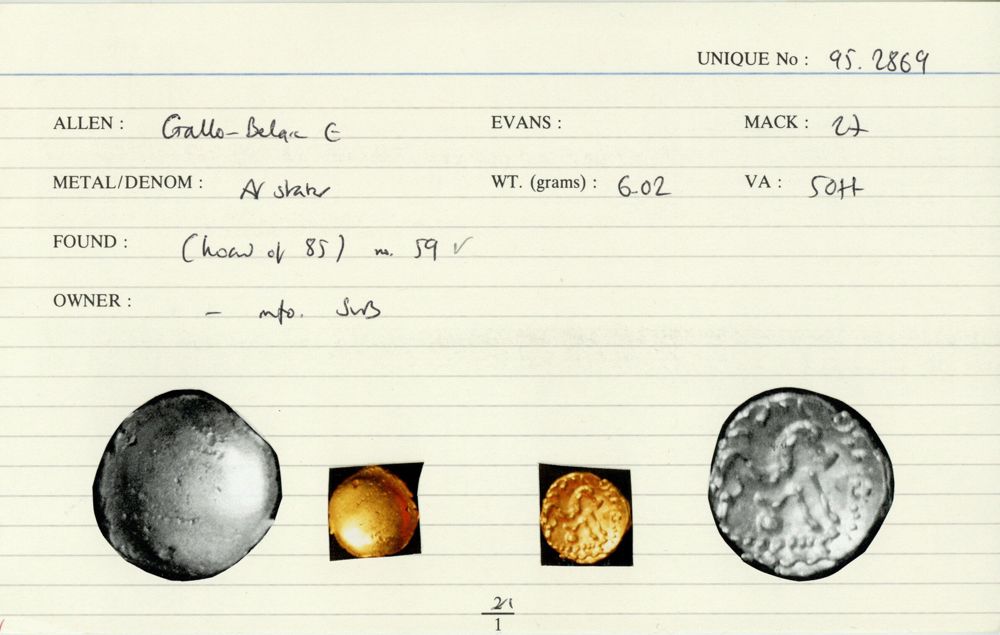 UNIQUE No : 95.2869
ALLEN : Gallo-Belgic E EVANS : MACK : 27
METAL/DENOM : AV stater WT. (grams) : 6.02 VA :
FOUND : (hoard of 85) no. 59 ✓
OWNER : – info. SWB
21
1